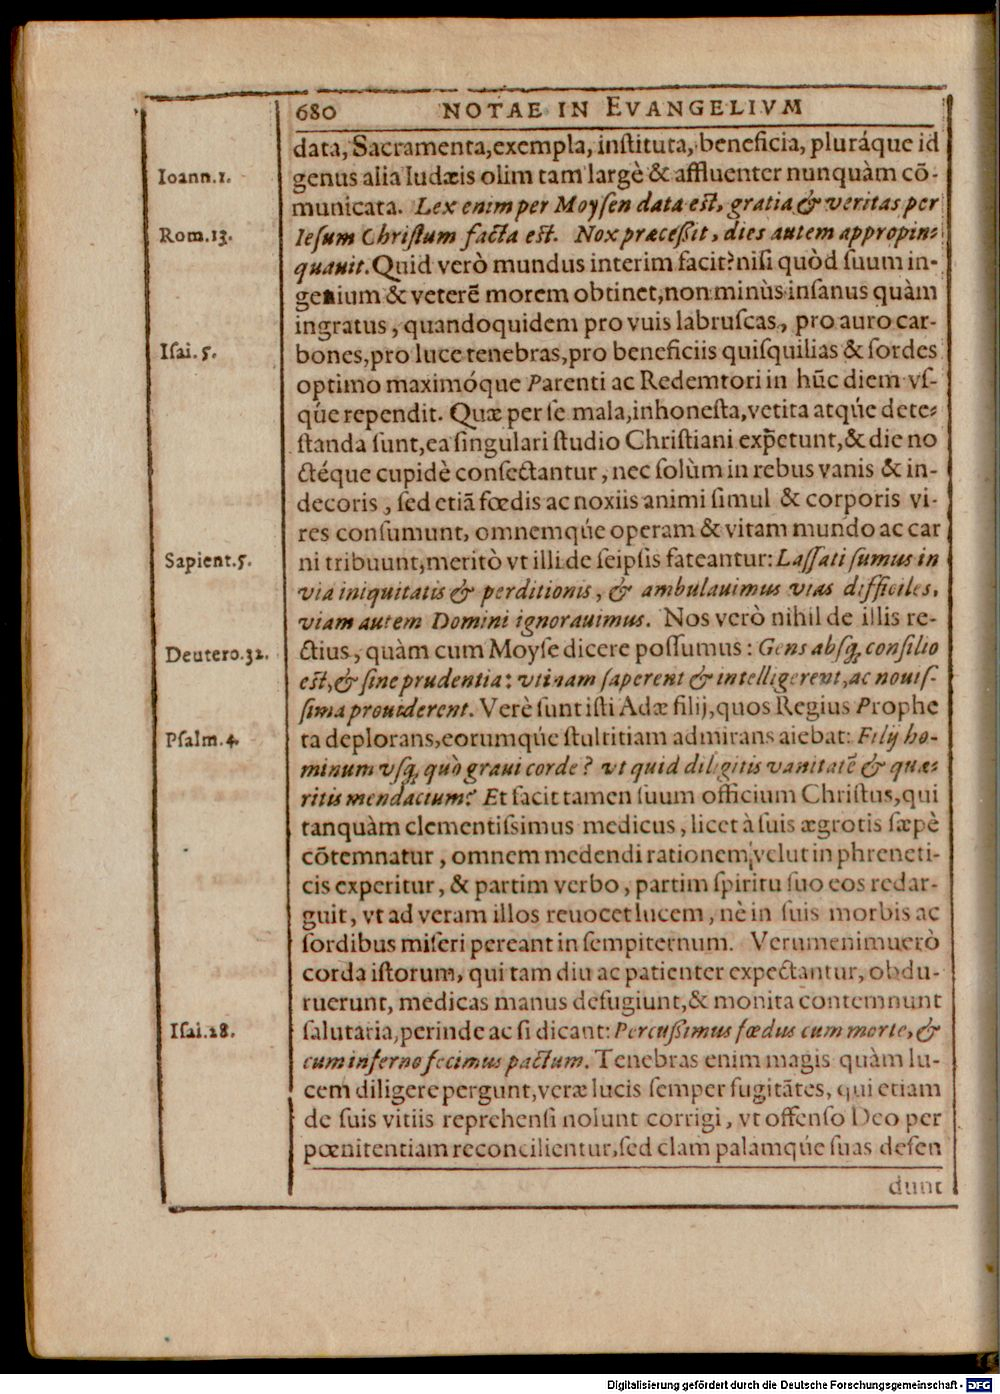 680 NOTAE IN EVANGELIVM
data, Sacramenta, exempla, inſtituta, beneficia, pluráque id
Ioann.1. genus alia Iudæis olim tam largè & affluenter nunquàm cō-
municata. Lex enim per Moyſen data eſt, gratia & veritas per
Rom.13. Ieſum Chriſtum facta eſt. Nox præceßit, dies autem appropin-
quauit. Quid verò mundus interim facit? niſi quòd ſuum in-
genium & veterē morem obtinet, non minùs inſanus quàm
ingratus, quandoquidem pro vuis labruſcas, pro auro car-
Iſai.5. bones, pro luce tenebras, pro beneficiis quiſquilias & ſordes
optimo maximóque Parenti ac Redemtori in hūc diem vſ-
qúe rependit. Quæ per ſe mala, inhoneſta, vetita atqúe dete-
ſtanda ſunt, ea ſingulari ſtudio Chriſtiani exp̄etunt, & die no
ctéque cupidè conſectantur, nec ſolùm in rebus vanis & in-
decoris, ſed etiā fœdis ac noxiis animi ſimul & corporis vi-
res conſumunt, omnemqúe operam & vitam mundo ac car
Sapient.5. ni tribuunt, meritò vt illi de ſeipſis fateantur: Laſſati ſumus in
via iniquitatis & perditionis, & ambulauimus vias difficiles,
viam autem Domini ignorauimus. Nos verò nihil de illis re-
Deutero.32. ctius, quàm cum Moyſe dicere poſſumus: Gens abſq; conſilio
eſt, & ſine prudentia: vtinam ſaperent & intelligerent, ac nouiſ-
ſima prouiderent. Verè ſunt iſti Adæ filij, quos Regius Prophe
Pſalm.4. ta deplorans, eorumqúe ſtultitiam admirans aiebat: Filij ho-
minum vſq; quò graui corde? vt quid diligitis vanitatē & quæ-
ritis mendacium? Et facit tamen ſuum officium Chriſtus, qui
tanquàm clementiſsimus medicus, licet à ſuis ægrotis ſæpè
cōtemnatur, omnem medendi rationem, velut in phreneti-
cis experitur, & partim verbo, partim ſpiritu ſuo eos redar-
guit, vt ad veram illos reuocet lucem, nè in ſuis morbis ac
ſordibus miſeri pereant in ſempiternum. Verumenimuerò
corda iſtorum, qui tam diu ac patienter expectantur, obdu-
ruerunt, medicas manus defugiunt, & monita contemnunt
Iſai.28. ſalutaria, perinde ac ſi dicant: Percußimus fœdus cum morte, &
cum inferno fecimus pactum. Tenebras enim magis quàm lu-
cem diligere pergunt, veræ lucis ſemper fugitātes, qui etiam
de ſuis vitiis reprehenſi nolunt corrigi, vt offenſo Deo per
pœnitentiam reconcilientur, ſed clam palamqúe ſuas defen
dunt
Digitalisierung gefördert durch die Deutsche Forschungsgemeinschaft - DFG